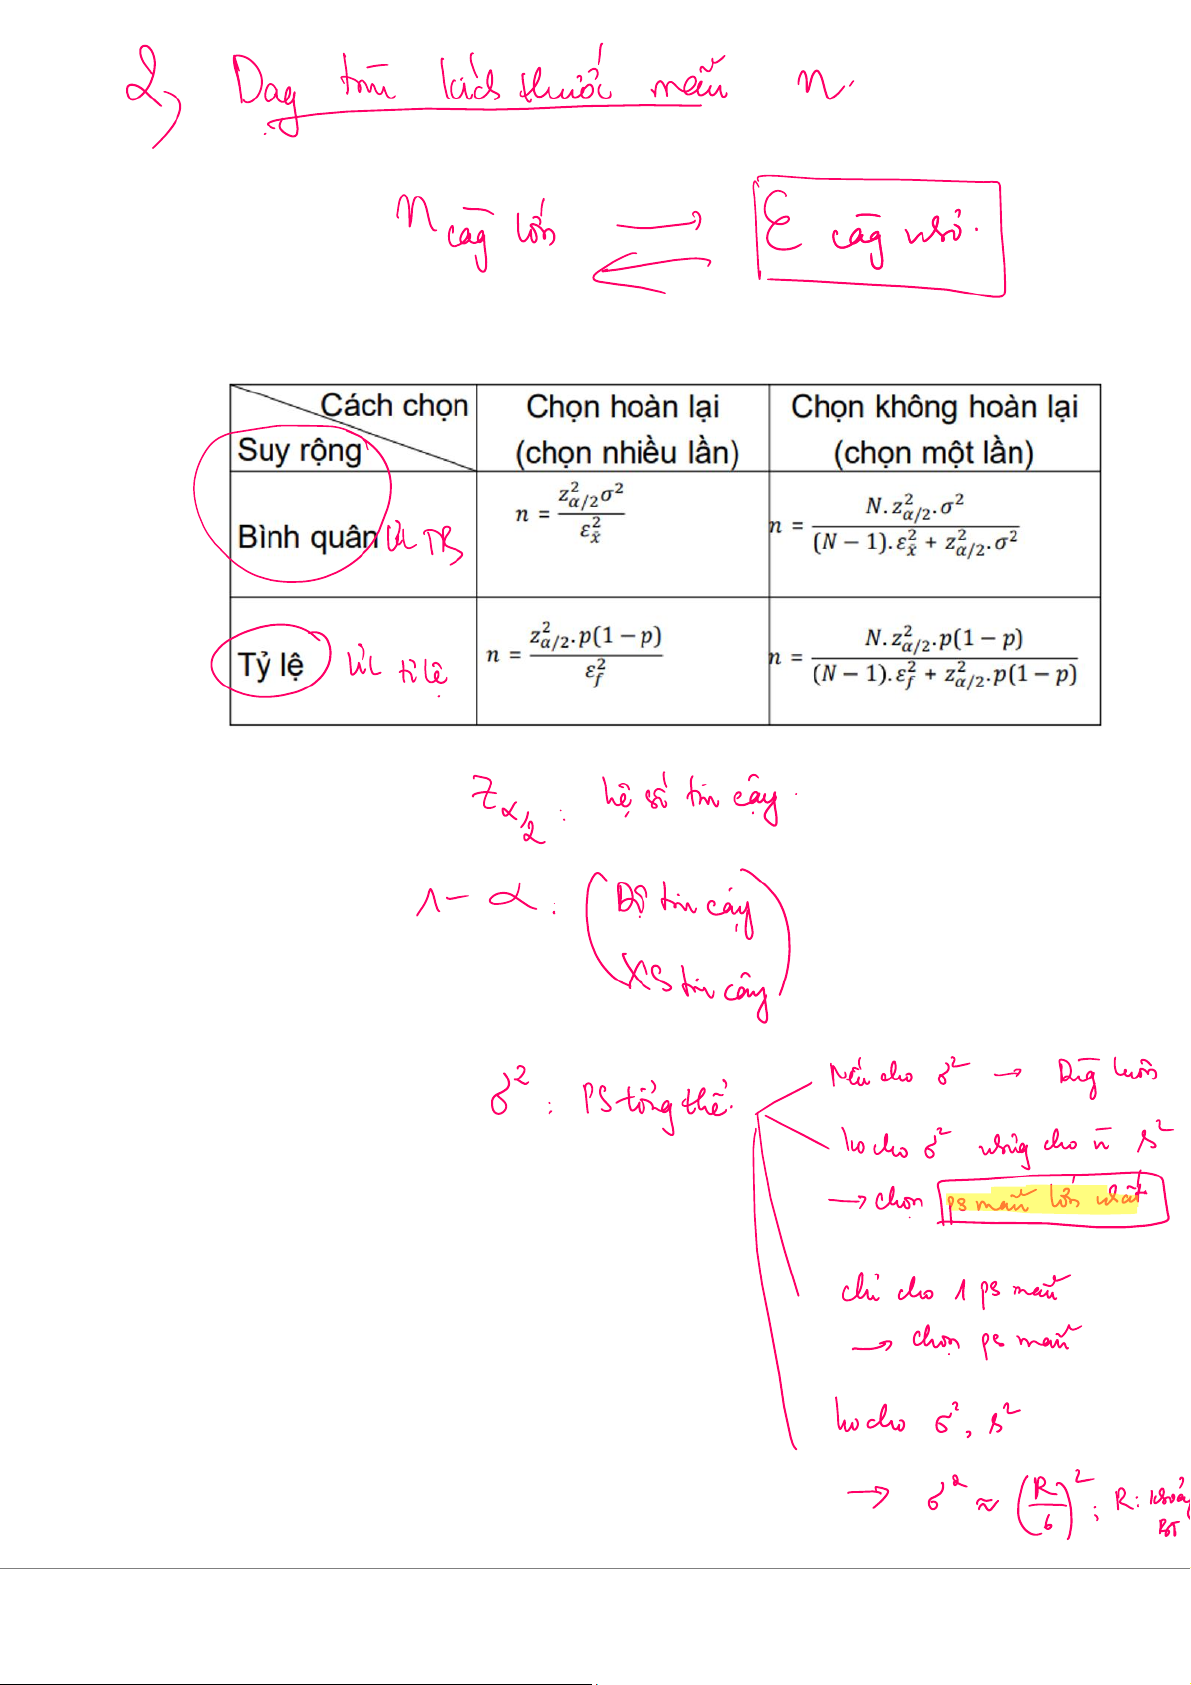 2, Dạg tìm kích thước mẫu n.
n càg lớn → ← ε càg nhỏ.
Cách chọn
Suy rộng
Chọn hoàn lại
(chọn nhiều lần)
Chọn không hoàn lại
(chọn một lần)
Bình quân ƯL TB
n = z²_{α/2}σ² / ε²_{x̄}
n = N.z²_{α/2}.σ² / (N − 1).ε²_{x̄} + z²_{α/2}.σ²
Tỷ lệ ƯL tỉ lệ
n = z²_{α/2}.p(1 − p) / ε²_f
n = N.z²_{α/2}.p(1 − p) / (N − 1).ε²_f + z²_{α/2}.p(1 − p)
Z_{α/2} : hệ số tin cậy.
1 − α : Độ tin cậy
XS tin cậy
σ² : PS tổng thể.
Nếu cho σ² → Dùg luôn
ko cho σ² nhưng cho n s²
→ chọn ps mẫu lớn nhất
chỉ cho 1 ps mẫu
→ chọn ps mẫu
ko cho σ², s²
→ σ² ≈ (R/6)² ; R: khoảg
BT